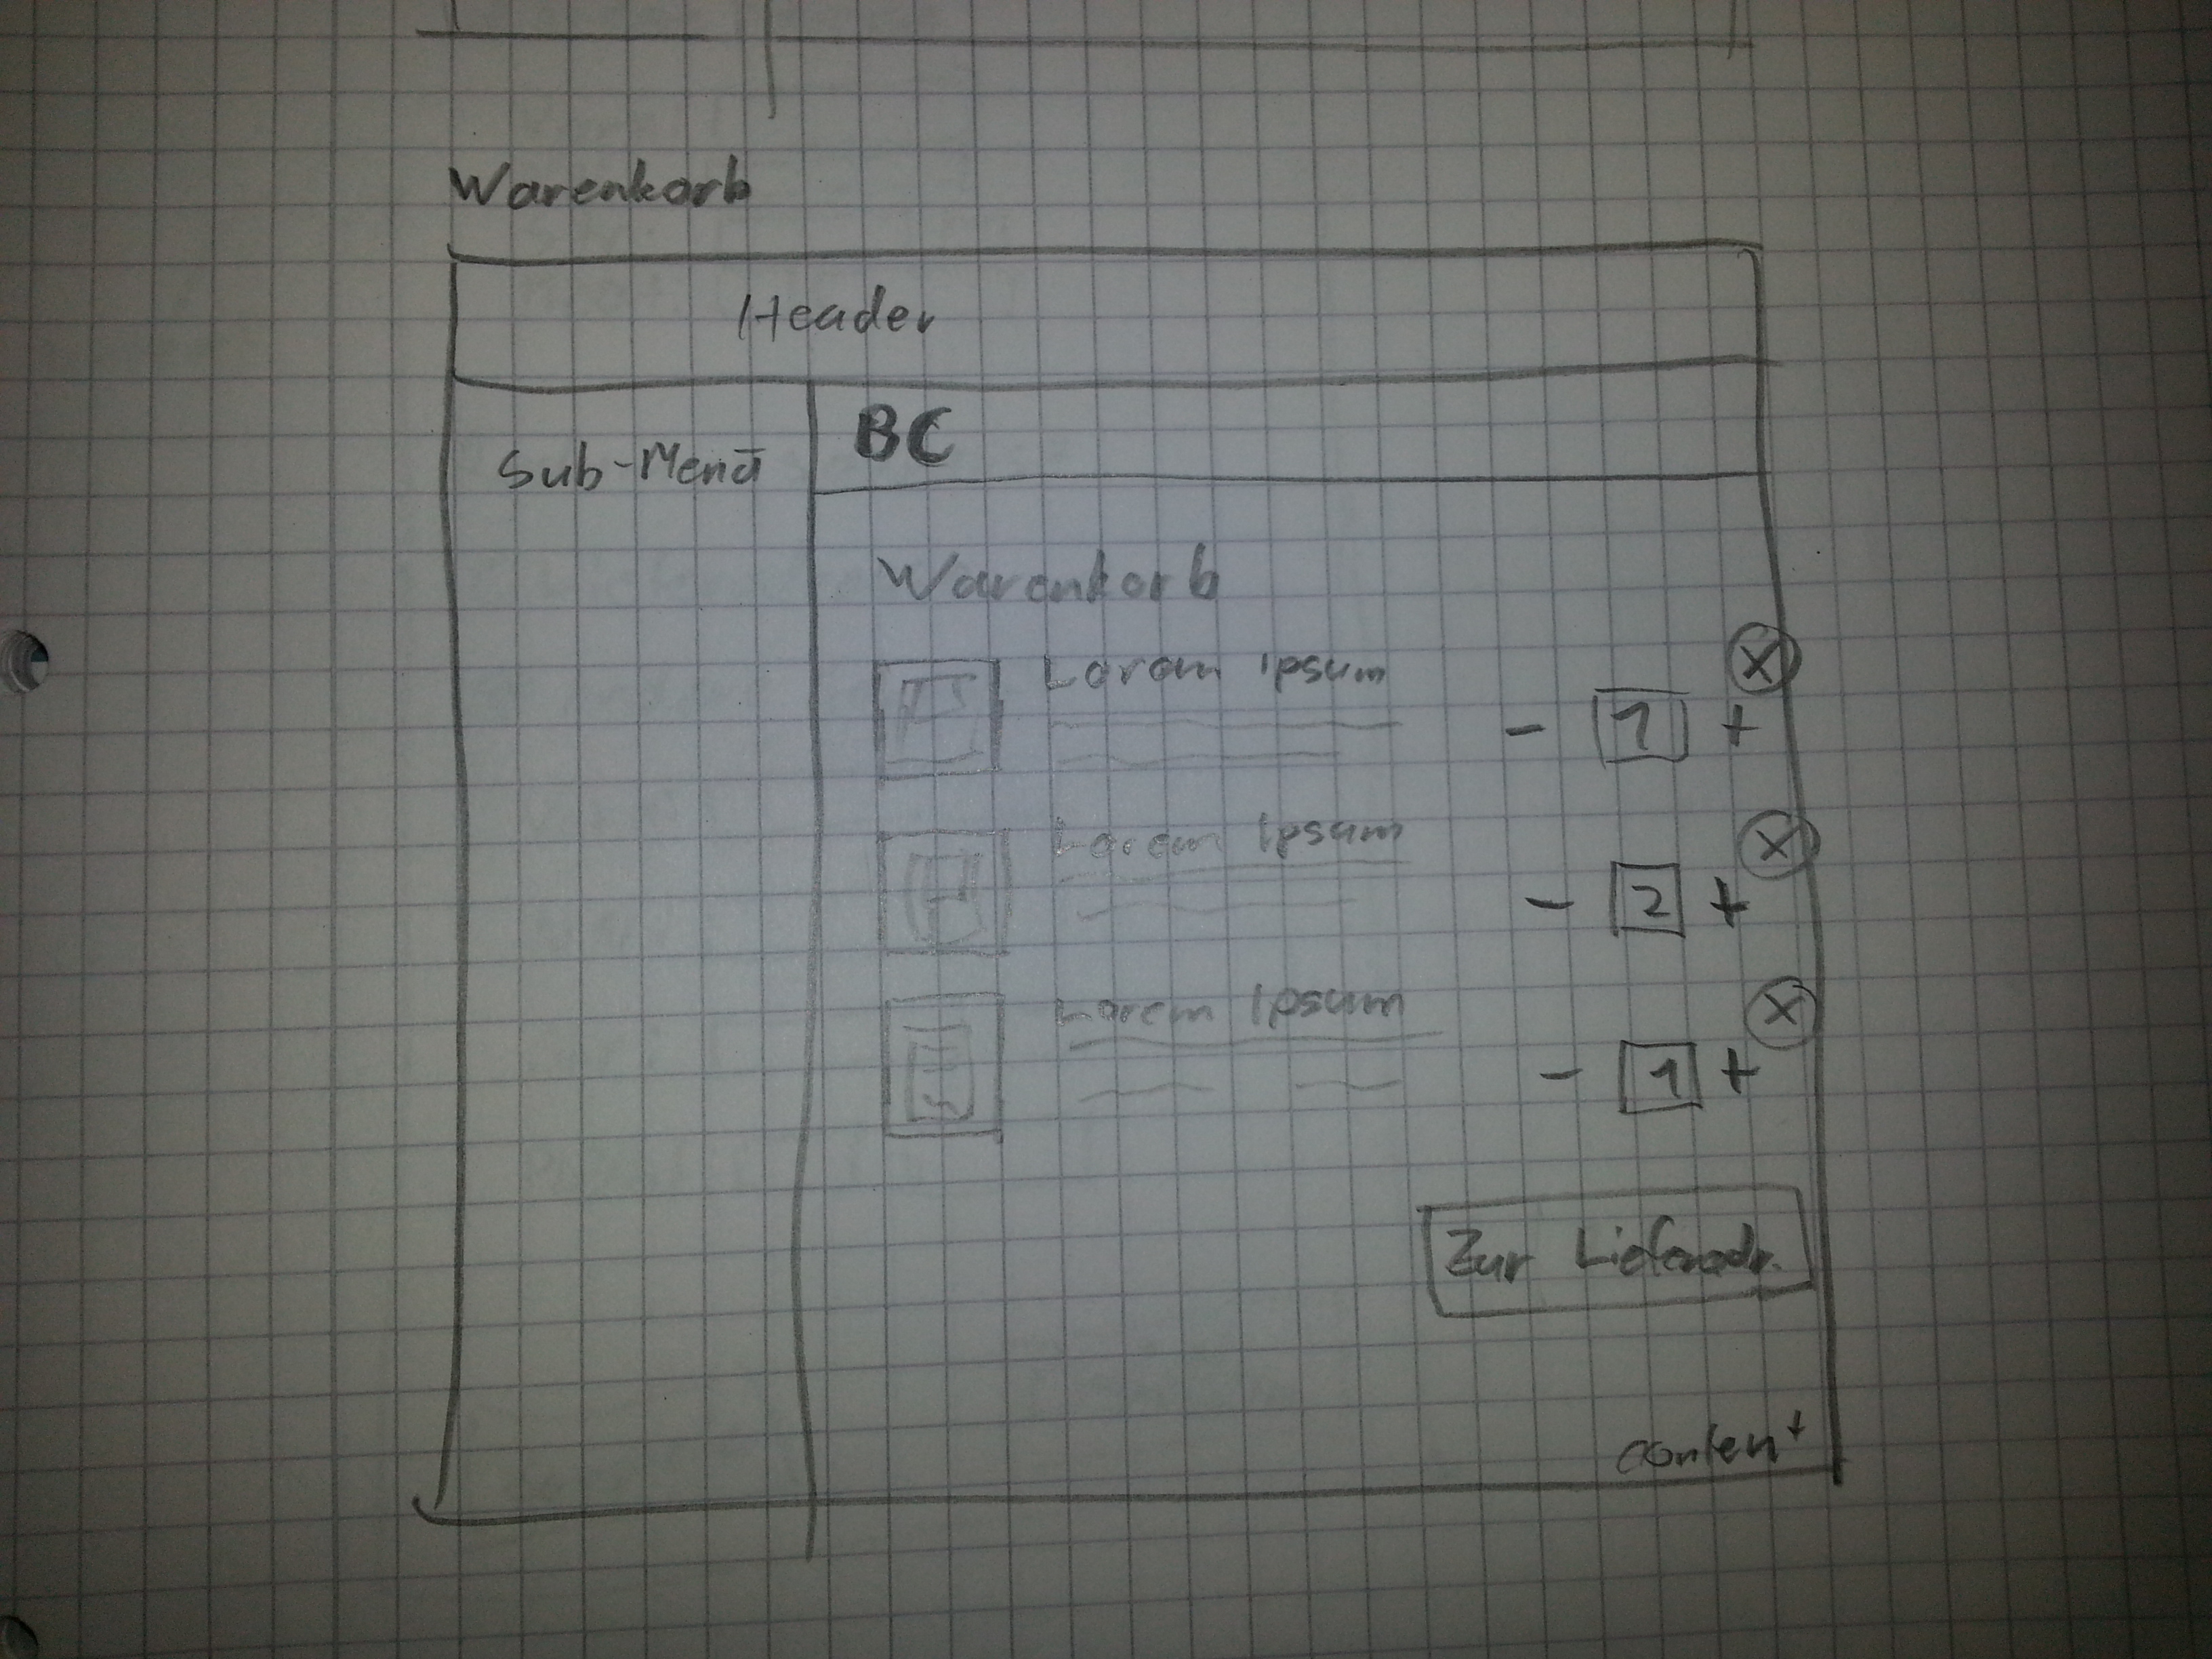 Warenkorb
Header
Sub-Menü
BC
Warenkorb
Lorem ipsum
- 1 +
X
Lorem Ipsum
- 2 +
X
Lorem Ipsum
- 1 +
X
Zur Lieferadr.
content